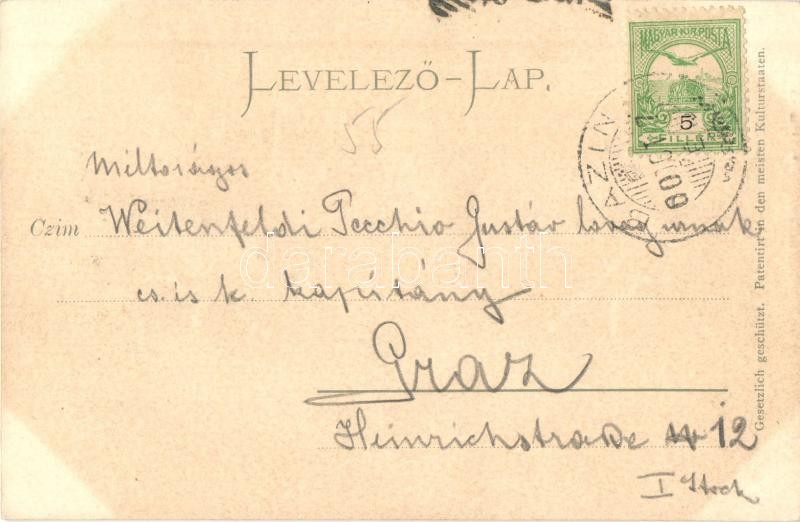 LEVELEZŐ-LAP.
MAGYAR KIR. POSTA
5
FILLÉR
55
Méltoságos
Czim Weitenfeldi Pecchio Gusztáv lovag urnak
cs. is k. kapitány
Graz
Heinrichstraße 12
I Stock
Gesetzlich geschützt. Patentirt in den meisten Kulturstaaten.
darabanth